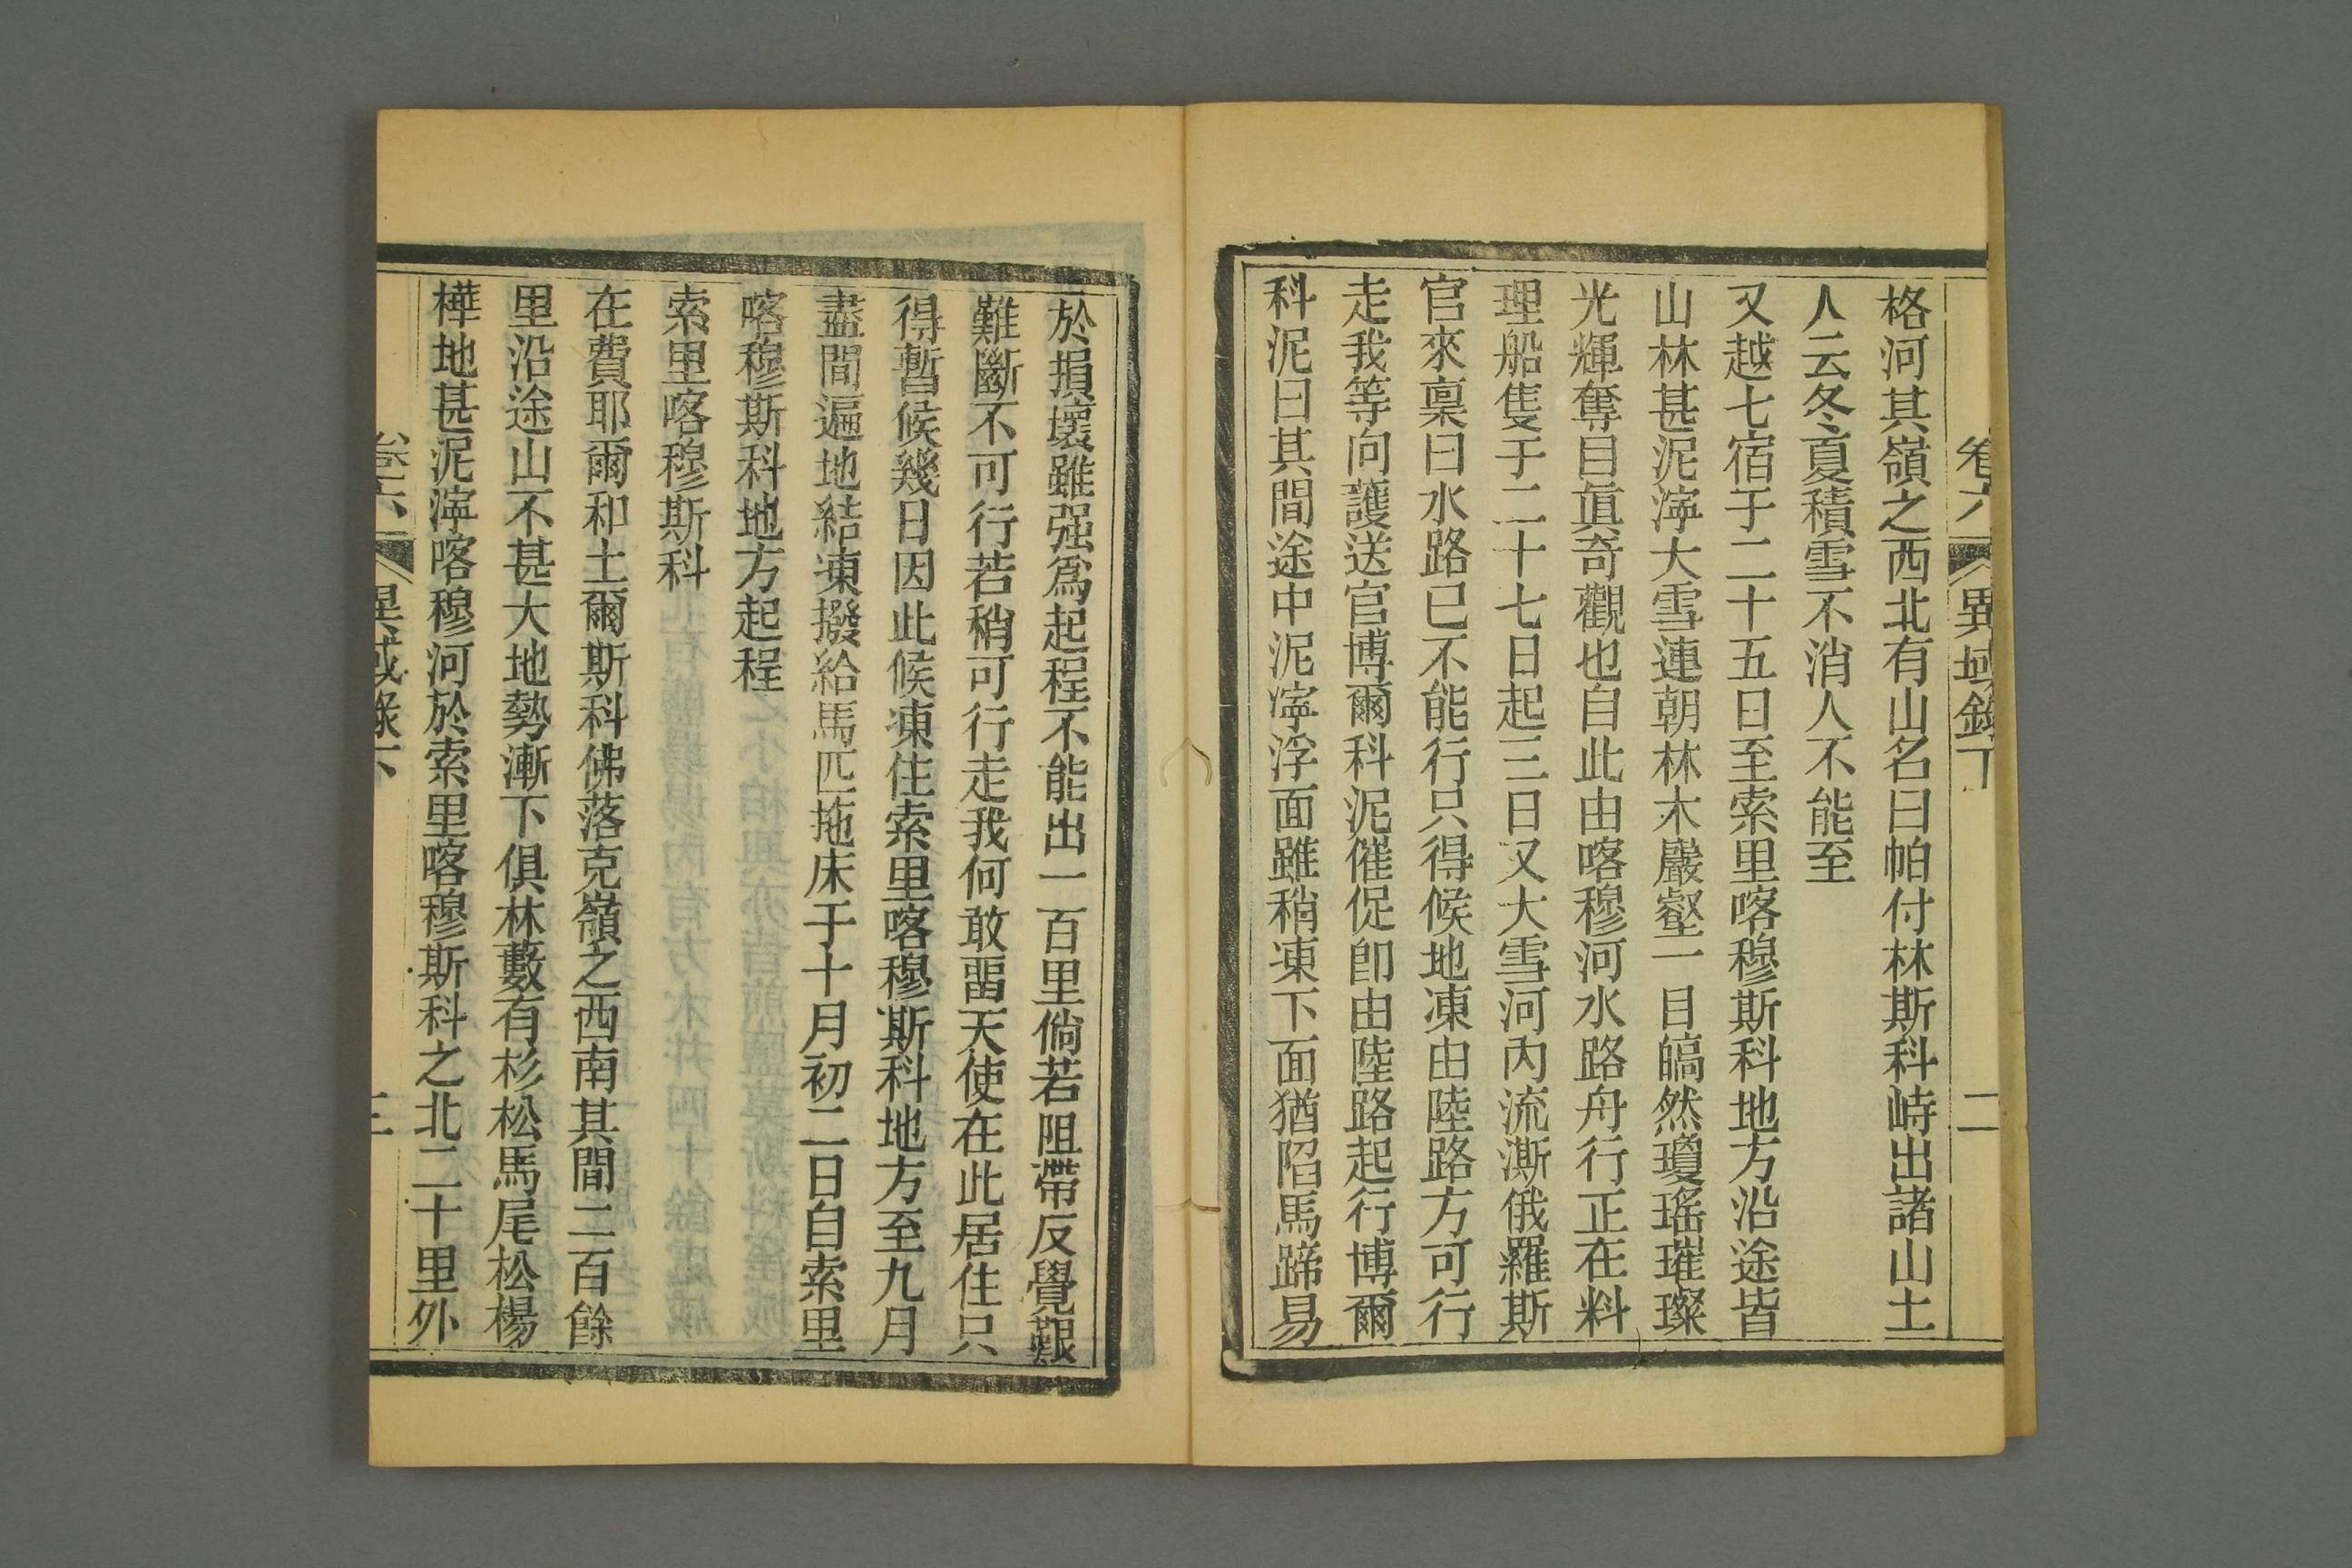 卷六 異域錄下 二
格河其嶺之西北有山名曰帕付林斯科峙出諸山土
人云冬夏積雪不消人不能至
又越七宿于二十五日至索里喀穆斯科地方沿途皆
山林甚泥濘大雪連朝林木巖壑一目皜然瓊瑤璀璨
光輝奪目眞奇觀也自此由喀穆河水路舟行正在料
理船隻于二十七日起三日又大雪河內流澌俄羅斯
官來稟曰水路已不能行只得候地凍由陸路方可行
走我等向護送官博爾科泥催促卽由陸路起行博爾
科泥曰其間途中泥濘浮面雖稍凍下面猶陷馬蹄易
於損壞雖强爲起程不能出一百里倘若阻滯反覺艱
難斷不可行若稍可行走我何敢畱天使在此居住只
得暫候幾日因此候凍住索里喀穆斯科地方至九月
盡間遍地結凍撥給馬匹拖床于十月初二日自索里
喀穆斯科地方起程
索里喀穆斯科
在費耶爾和土爾斯科佛落克嶺之西南其間二百餘
里沿途山不甚大地勢漸下俱林藪有杉松馬尾松楊
樺地甚泥濘喀穆河於索里喀穆斯科之北二十里外
卷六 異域錄下 三